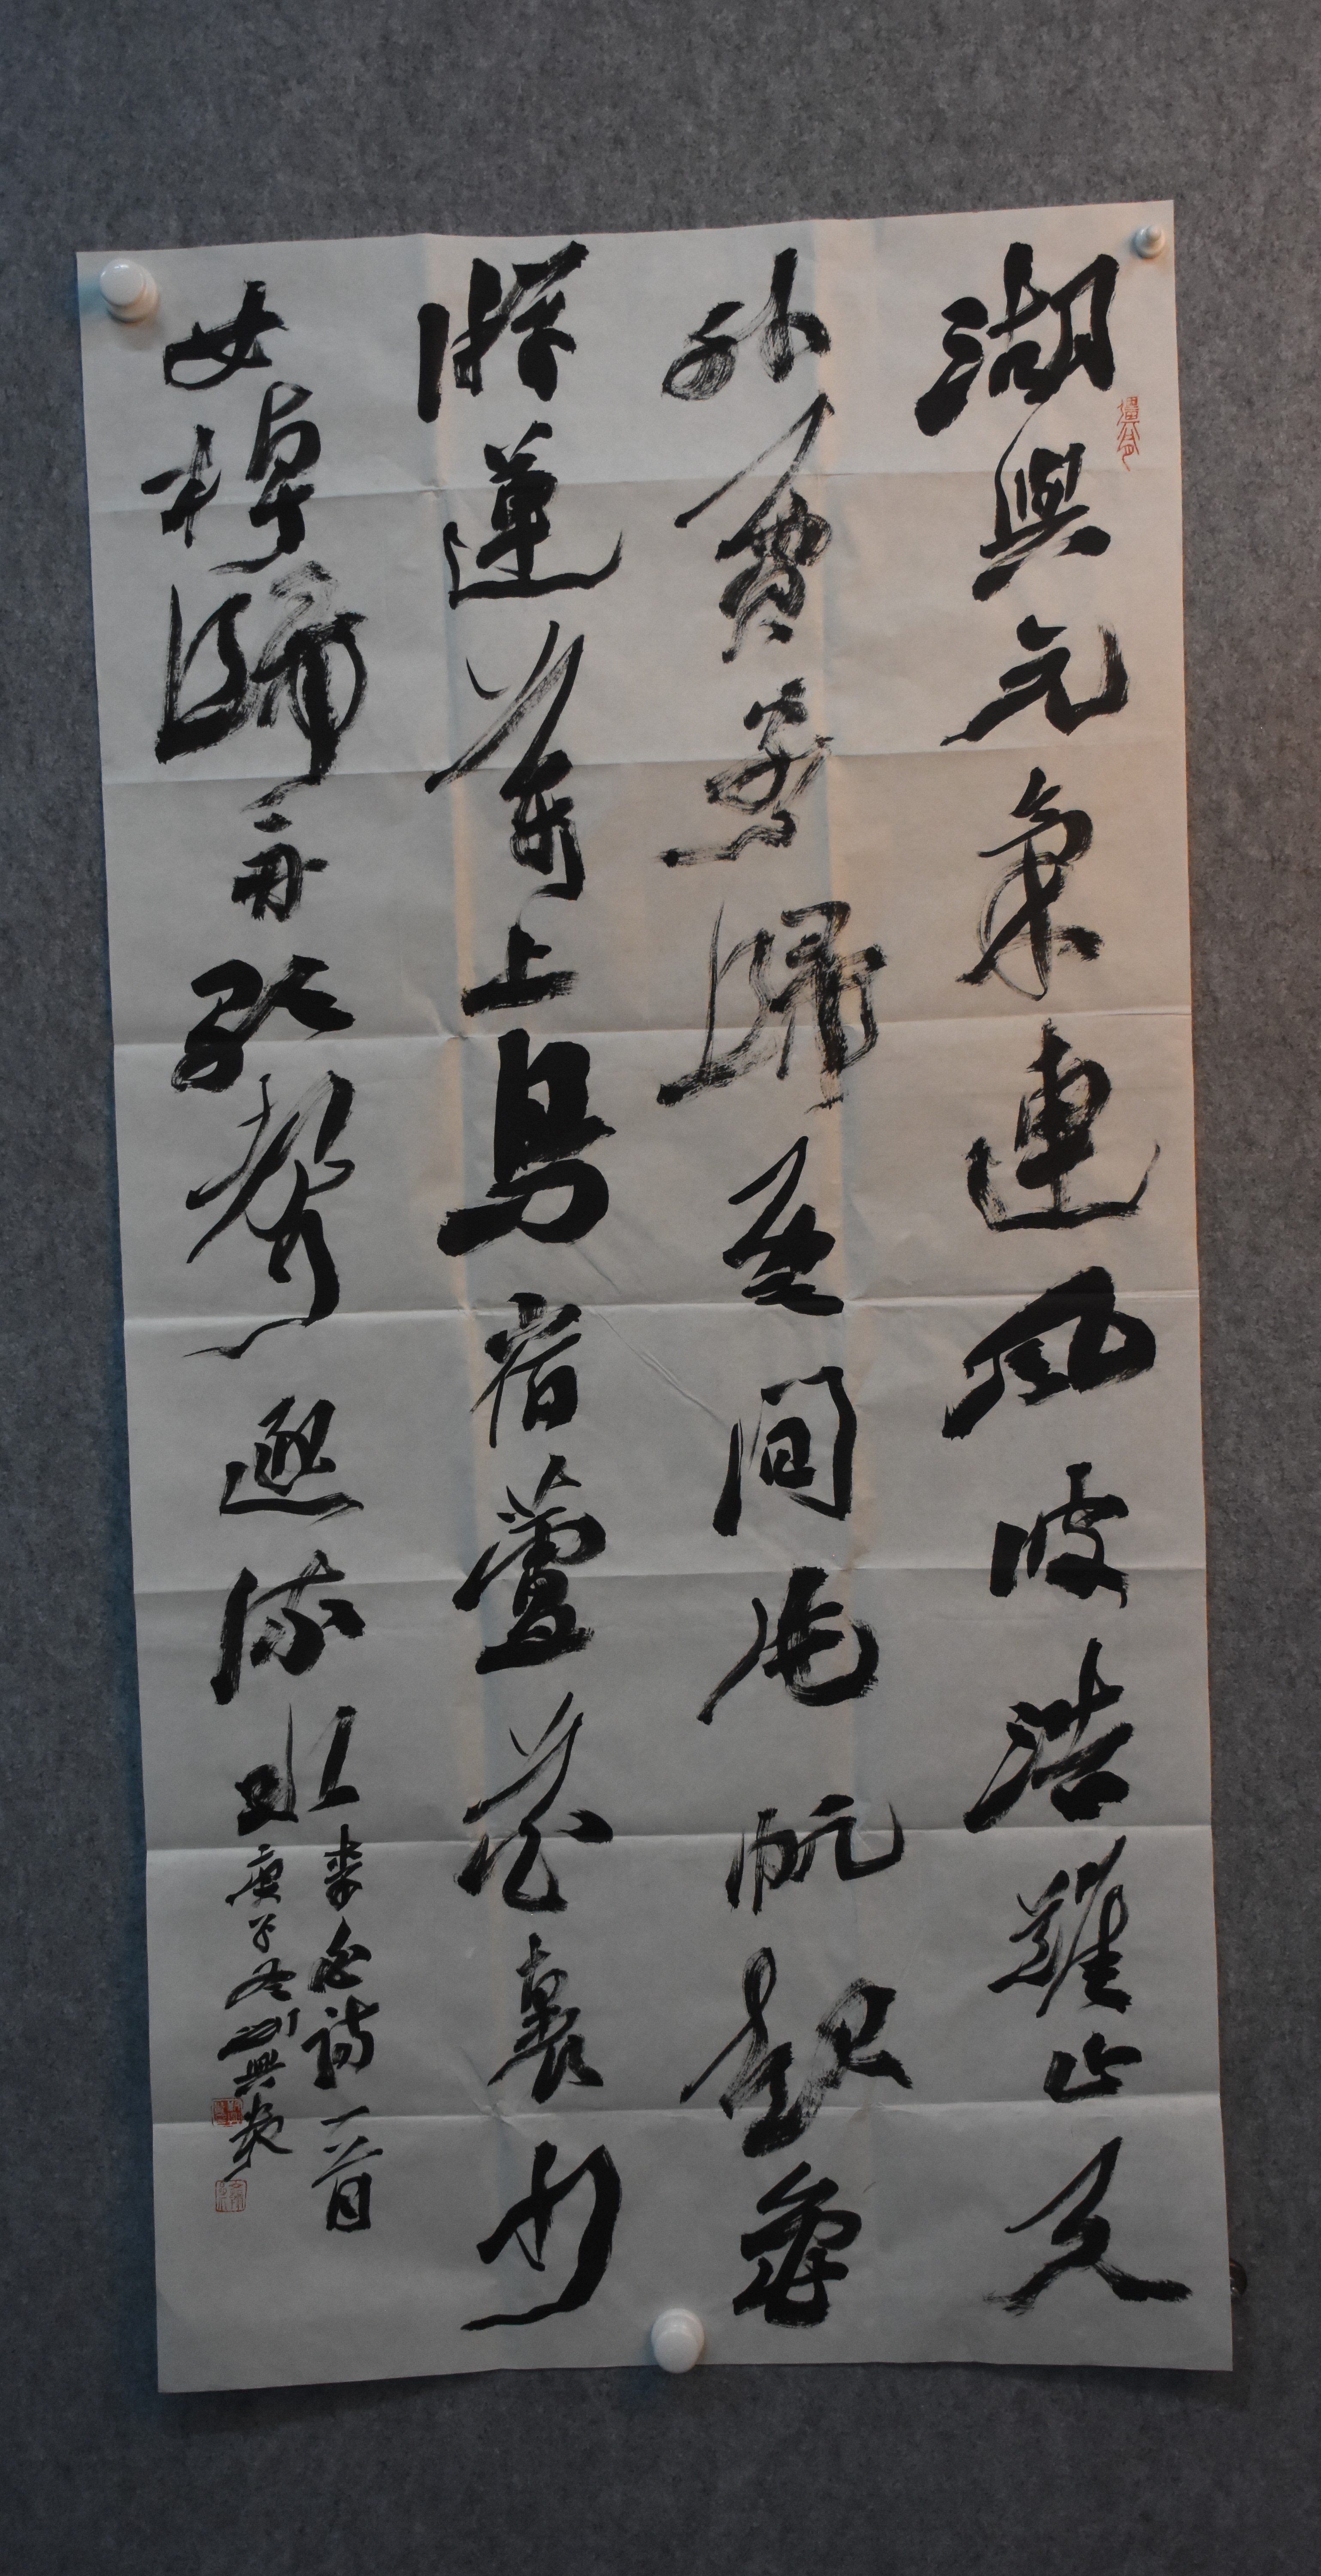 湖與元氣連風波浩難止天
外賈客歸云間片帆起龜
游蓮葉上鳥宿蘆花裏少
女棹歸舟歌聲逐流水
李白詩一首
庚子冬